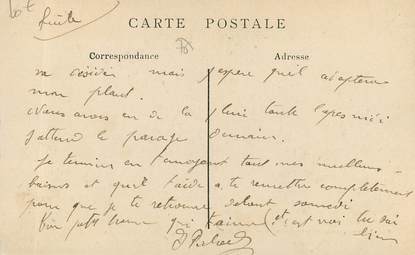 suite
CARTE POSTALE
Correspondance
Adresse
va décider mais j'espère qu'il adoptera
mon plan.
Nous avons eu de la pluie toute l'après midi
j'attend le passage demain.
Je termine en t'envoyant tous mes meilleurs
baisers et qu'il t'aide à te remettre complètement
pour que je te retrouve samedi
Ton petit homme qui t'aime, et c'est vrai tu sais
bien